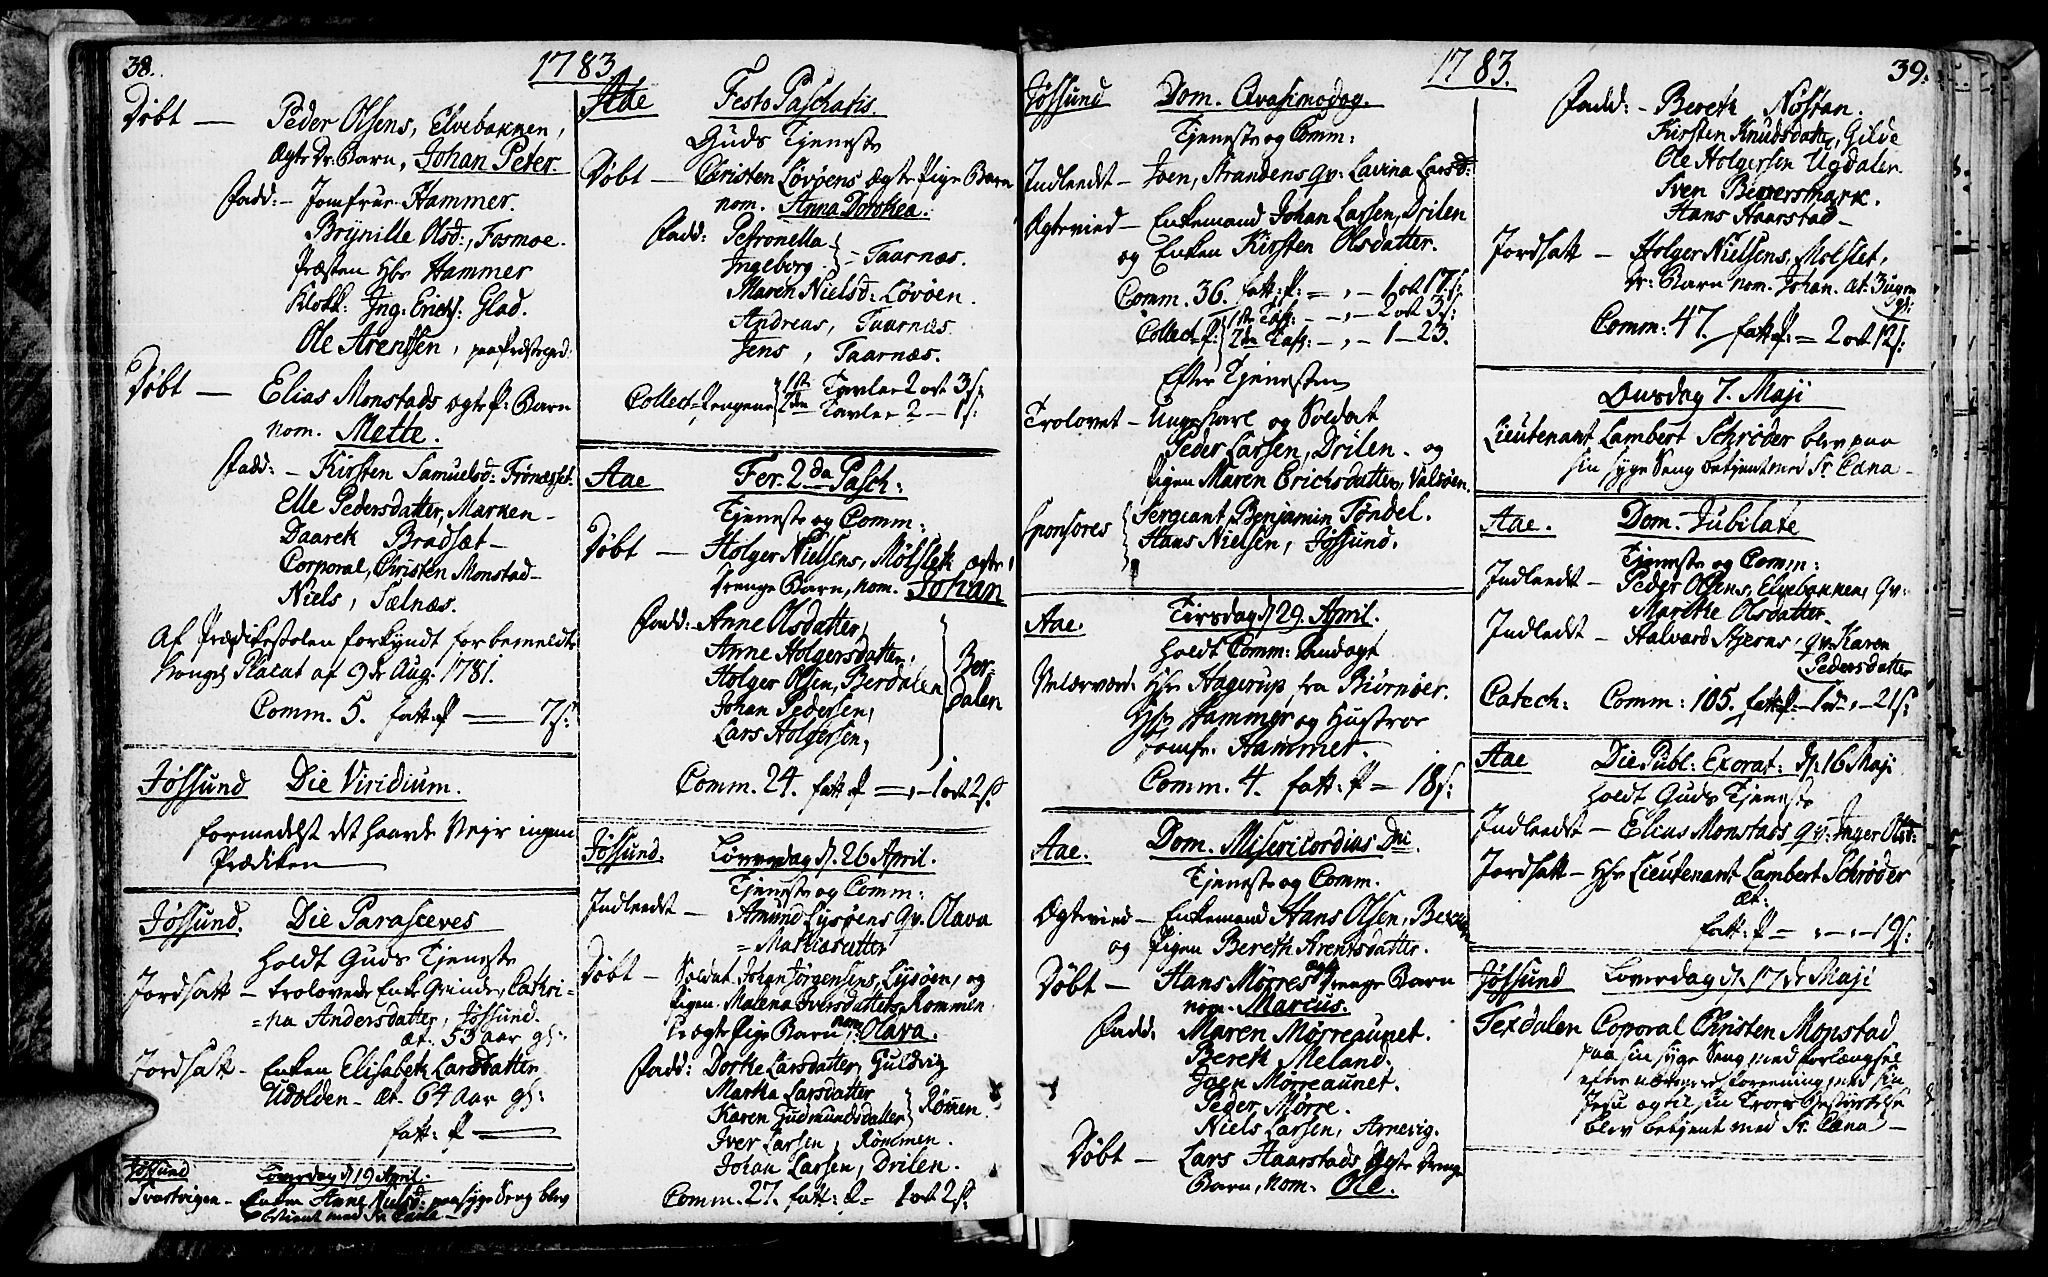 38.
1783
Døbt — Peder Olsens, Elvebakken,
ægte Dr. Barn, Johan Peter.
Fadd: — Jomfrue Hammer.
Brynille Olsd:, Fosmoe.
Præsten Hr Hammer
Klokk: Ing. Erichs: Glad.
Ole Arentsen, paa Præstegd:
Døbt — Elias Monstads ægte P: Barn
nom. Mette.
Fadd: — Kirsten Samuelsd: Frönæsset.
Elle Pedersdatter, Marken —
Daareth Bradsæt —
Corporal, Christen Monstad —
Niels, Sælnæs.
Af Prædikestolen forkyndt forbemeldte
Konges Placat af 9de Aug. 1781.
Comm. 5. fatt: P — 7 s:
Jøssund Die Viridium.
formedelst det haarde Vejr ingen
Prædiken —
Jøssund. Die Parasceves
holdt Guds Tjeneste
Jordsatt — trolovede Enke Qvinde, Cathri=
=na Andersdatter, Jøssund.
æt. 53 aar gl:
Jordsatt — Enken Elisabeth Larsdatter
Udolden — æt. 64 Aar gl:
fatt: P —
Jøssund Løverdag d 19 April.
Svartvigen — Enken Anne Nielsd: paa syge Seng blev
betient med Sr. Cæna —
Aae Festo Paschatis.
Guds Tjeneste
Døbt — Christen Løvöens ægte Pige Barn
nom. Anna Dorothea.
Fadd: Petronella
Ingeborg } — Taarnæs.
Maren Nielsd: Løvöen.
Andreas, Taarnæs
Jens, Taarnæs.
Collect-Pengene { 1ste Tavle 2 ort 3 s:
2den Tavle 2 — 1 s:
Aae Fer. 2da Pasch:
Tjeneste og Comm:
Døbt — Holger Nielsens, Mølsleth ægte
Drenge Barn, nom. Johan
Fadd: — Anne Olsdatter,
Anne Holgersdatter,
Holger Olsen, Berdalen
Johan Pedersen,
Lars Holgersen, } Ber-
dalen
Comm. 24. fatt: P — 1 ort 2 s:
Jøssund. Løverdag d. 26 April.
Tjeneste og Comm:
Indleedt — Amund Lysøens Qv. Olava
= Mathiasdatter
Døbt — Soldat Johan Jørgensens, Lysøen, og
Pigen Malena Iversdatters, Rommen
uægte Pige Barn nom. Olava.
Fadd: Dorthe Larsdatter, Guldvig
Martha Larsdatter
Karen Gudmundsdatter } Römen
Iver Larsen, Römmen.
Johan Larsen, Drilen.
Comm. 27. fatt: P — 1 ort 2 s:
1783.
39.
Jøssund Dom. Qvasimodog.
Tjeneste og Comm:
Indleedt — Joen, Strandens Qv: Lavina Larsd:
Ægteviid — Enkemand Johan Larsen, Drilen
og Enken Kirsten Olsdatter.
Comm. 36. fatt: P: — „ — 1 ort 17 s:
Collect-P: { 1ste Tafl: — „ — 2 ort 3 s:
2den Tafl: — „ — 1 — 23.
Efter Tjenesten
Trolovet — Ungekarl og Soldat
Peder Larsen, Drilen — og
Pigen Maren Erichsdatter, Valsöen.
Sponsores { Sergeant Benjamin Töndel.
Hans Nielsen, Jøssund.
Aae. Tirsdag d 29. April.
holdt Comm: Andagt
Velærværd. Hr Hagerup, fra Biörnöer.
Hr Hammer og Hustroe
Jomfr. Hammer.
Comm. 4. fatt: P — 18 s:
Aae. Dom. Misericordias Dni.
Tjeneste og Comm.
Ægteviid — Enkemand Hans Olsen,
og Pigen Bereth Arentsdatter.
Døbt — Hans Mørres ægte Drenge Barn
nom. Marcus.
Fadd: Maren Mørreaunet.
Bereth Meland.
Joen Mørreaunet.
Peder Mørre.
Niels Larsen, Arnevig.
Døbt — Lars Haarstads ægte Drenge
Barn, nom. Ole.
Fadd: — Bereth Nøstan.
Kirsten Knudsdatter, Gilde
Ole Holgersen Ugdalen
Sven Bevermark.
Hans Haarstad —
Jordsatt — Holger Nielsens, Molslet,
Dr: Barn nom. Johan. æt: 3 uger
gl:
Comm: 47. fatt P: — 2 ort 12 s:
Onsdag 7. Maji
Lieutenant Lambert Schröder blev paa
sin syge Seng betjent med Sr. Cæna —
Aae. Dom. Jubilate
Tjeneste og Comm:
Indleedt — Peder Olsens, Elvebakken, Qv:
Marithe Olsdatter
Indleedt — Halvard Stjerns, Qv: Karen
Pedersdatter
Catech: Comm: 105. fatt: P — 1 — „ — 21 s:
Aae Die Publ: Exorat: d. 16 Maji
holdt Guds Tjeneste
Indleedt — Elias Monstads Qv: Inger Olsd:
Jordsatt — Hr Lieutenant Lambert Schröder
æt:
fatt: P — „ — „ — 19 s:
Jøssund Løverdag d. 17de Maji
Texdalen Coporal Christen Monstad
paa sin syge Seng med forlængsel
efter nærmere forening med sin
Jesu og til sin Troes Bestyrkelse
blev betjent med Sr. Cæna —